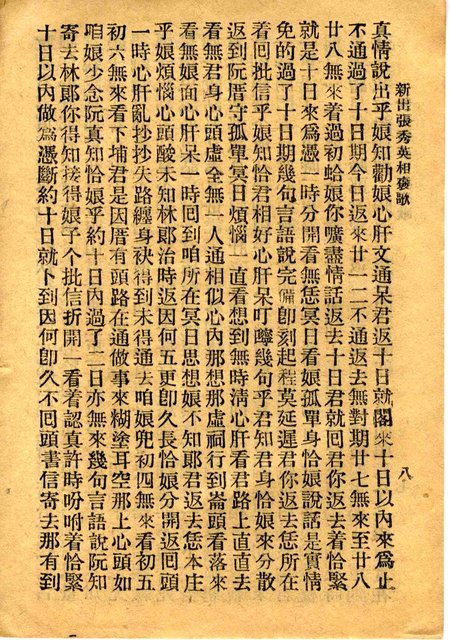 新出張秀英相褒歌
八
真情說出乎娘知勸娘心肝文通呆君返十日就閣來十日以內來為止
不通過了十日期今日返來廿一二不通返去無對期廿七無來至廿八
廿八無來着過初蛤娘你嚝盡情話返去十日君就回君你返去着恰緊
就是十日來為憑一時分開看無恁冥日看娘孤單身恰娘說話是實情
免的過了十日期幾句言語說完備卽刻起程莫延遲君你返去恁所在
着回批信乎娘知恰君相好心肝呆叮嚀幾句乎君知君身恰娘來分散
返到阮厝守孤單冥日煩惱一直看想到無時清心肝看君路上直直去
看無君身心頭虛全無一人通相似心內那想那虛祠行到崙頭看落來
看無娘面心肝呆一時回到咱所在冥日思想娘不知郞君返去恁本庄
乎娘煩惱心頭酸未知林郞治時返因何五更卽久長恰娘分開返回頭
一時心肝亂抄抄失路纏身袂得到未得通去咱娘兜初四無來看初五
初六無來看下埔君是因厝有頭路在通做事來糊塗耳空那上心頭如
咱娘少念阮真知恰娘乎約十日內過了二日亦無來幾句言語說阮知
寄去林郞你得知接得娘子个批信折開一看着認真許時吩咐着恰緊
十日以內做為憑斷約十日就卜到因何卽久不回頭書信寄去那有到